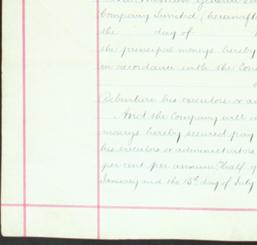 Company Limited, (hereinafter
the day of
the principal moneys hereby
in accordance with the Con
Debenture his executors or ad
And the Company will
moneys hereby secured pay
his executors or administrators
per cent per annum half y
January and the 15th day of July